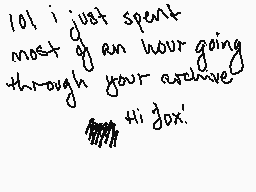 lol i just spent
most of an hour going
through your archive
Hi Jox!